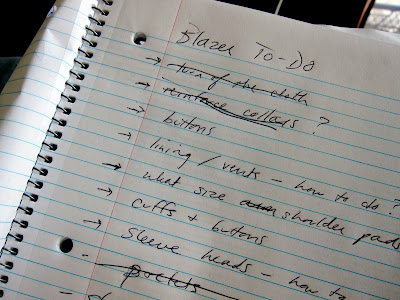 Blazer To-Do
→ turn of the cloth
→ reinforce collars ?
→ buttons
→ lining / vents - how to do ?
→ what size shoulder pads
→ cuffs + buttons
→ sleeve heads - how to
- pockets